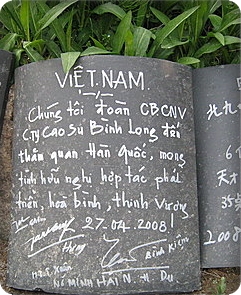 VIỆT NAM
Chúng tôi đoàn CBCNV
CTy Cao Sú Bình Long đến
thăm quan Hàn Quốc, mong
tình hữu nghị hợp tác phát
triển, hòa bình, thịnh Vượng
27-04-2008!
Hùng
Bình Kiệm
MINH HẢI N. H Dụ
北九
6
天才
35
2008